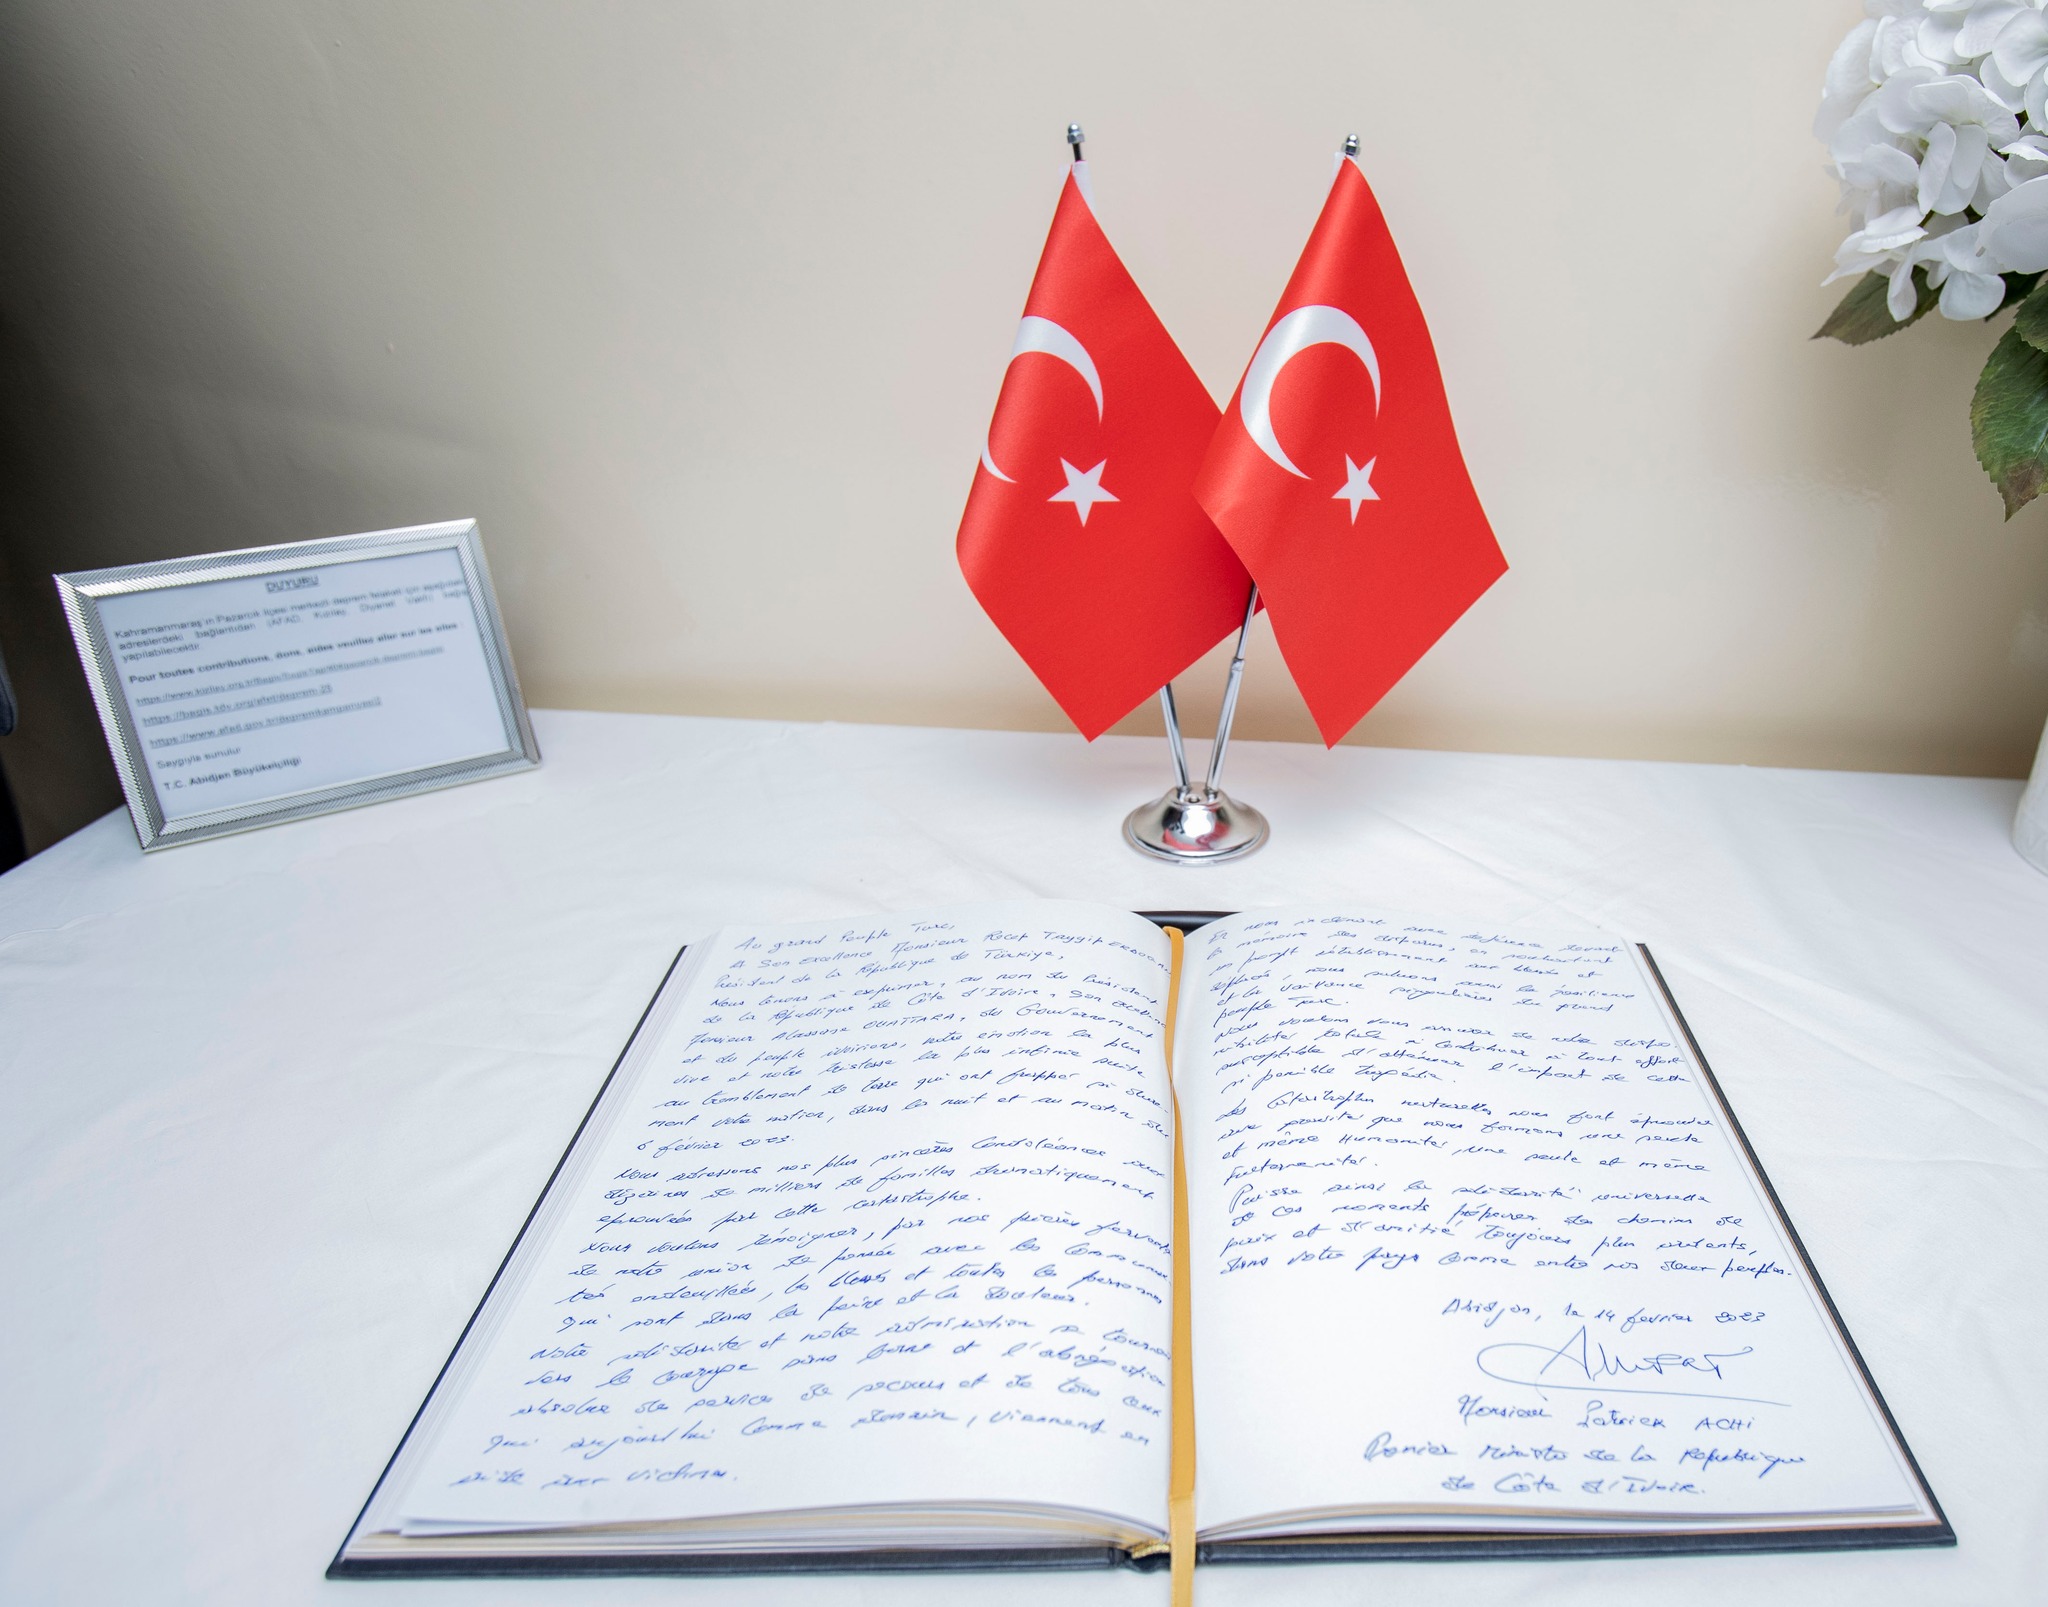 DUYURU
Kahramanmaraş'ın Pazarcık ilçesi merkezli deprem felaketi için aşağıdaki
adreslerdeki bağlantıdan (AFAD, Kızılay, Diyanet Vakfı) bağış
yapılabilecektir.
Pour toutes contributions, dons, aides veuillez aller sur les sites :
Saygıyla sunulur
T.C. Abidjan Büyükelçiliği
Au grand Peuple Turc,
A Son Excellence Monsieur Recep Tayyip ERDOGAN
Président de la République de Türkiye,
Nous tenons à exprimer, au nom du Président
de la République de Côte d'Ivoire, Son Excellence
Monsieur Alassane OUATTARA, du Gouvernement
et du peuple ivoiriens, notre émotion la plus
vive et notre tristesse la plus infinie suite
au tremblement de terre qui ont frappé si dure-
ment votre nation, dans la nuit et au matin du
6 février 2023.
Nous adressons nos plus sincères Condoléances aux
dizaines de milliers de familles dramatiquement
eprouvées par cette catastrophe.
Nous voulons témoigner, par nos prières ferventes
de notre union de pensée avec les Communau-
tés endeuillées, les blessés et toutes les personnes
qui sont dans la peine et la douleur.
Notre solidarité et notre admiration se tournent
vers le courage sans borne et l'abnégation
absolue des services de secours et de tous ceux
qui aujourd'hui comme demain, viennent en
aide aux victimes.
En nous inclinant avec déférence devant
la mémoire des disparus, en souhaitant
un prompt rétablissement aux blessés et
, nous saluons aussi la résilience
et la vaillance singulières du grand
peuple Turc.
Nous voulons vous assurer de notre dispo-
nibilité totale à contribuer à tout effort
susceptible d'atténuer l'impact de cette
si pénible tragédie.
Les Catastrophes naturelles nous font éprouver
que nous formons une seule
et même Humanité, une seule et même
fraternité.
Puisse ainsi la solidarité universelle
de ces moments préparer des chemins de
paix et d'amitié toujours plus ardents,
dans votre pays comme entre nos deux peuples.
Abidjan, le 14 fevrier 2023
Monsieur Patrick ACHI
Premier Ministre de la République
de Côte d'Ivoire.